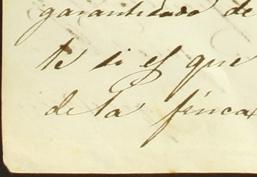 garantizado de
te si el que
de la finca